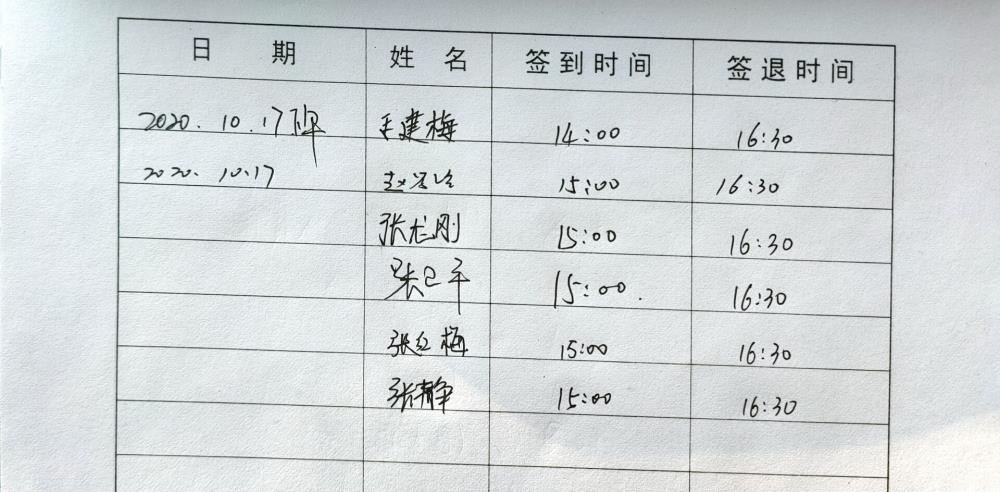 日 期 姓 名 签到时间 签退时间
2020.10.17下午 王建梅 14:00 16:30
2020.10.17 赵 15:00 16:30
张龙刚 15:00 16:30
张卫平 15:00 16:30
张红梅 15:00 16:30
张静 15:00 16:30